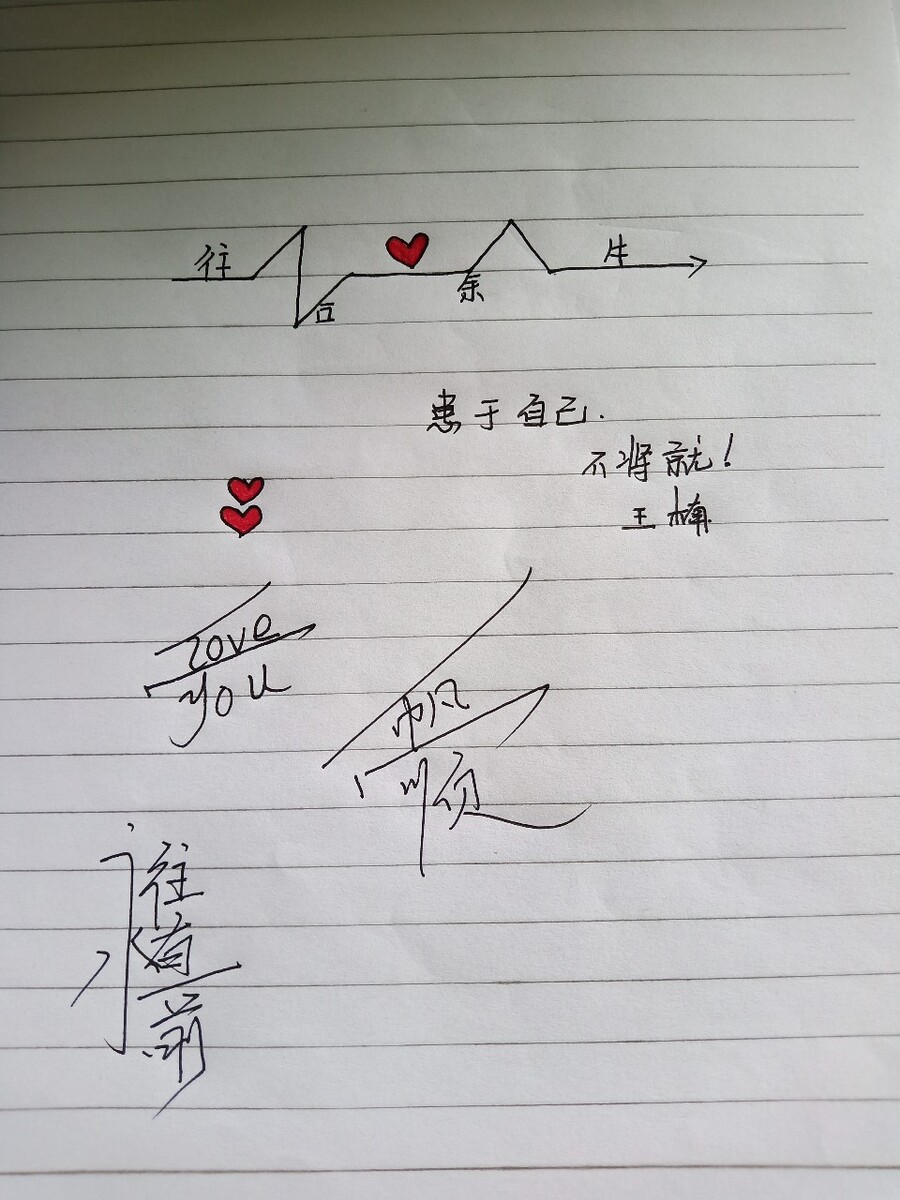 往后余生
患于自己.
不将就!
王楠
Love
you
一帆
一顺
永往直前